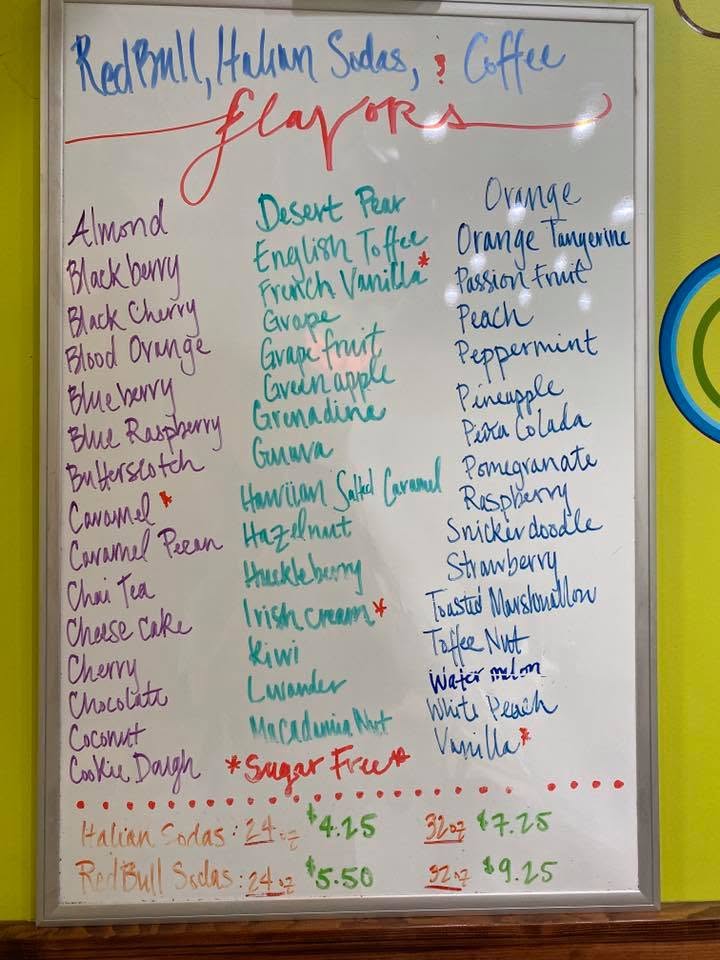 RedBull, Italian Sodas, & Coffee
flavors
Almond
Blackberry
Black Cherry
Blood Orange
Blueberry
Blue Raspberry
Butterscotch
Caramel *
Caramel Pecan
Chai Tea
Cheese cake
Cherry
Chocolate
Coconut
Cookie Dough
Desert Pear
English Toffee
French Vanilla *
Grape
Grapefruit
Green apple
Grenadine
Guava
Hawiian Salted Caramel
Hazelnut
Huckleberry
Irish cream *
Kiwi
Lavander
Macadamia Nut
*Sugar Free*
Orange
Orange Tangerine
Passion Fruit
Peach
Peppermint
Pineapple
Piña Colada
Pomegranate
Raspberry
Snickerdoodle
Strawberry
Toasted Marshmallow
Toffee Nut
Watermelon
White Peach
Vanilla *
Italian Sodas: 24oz $4.25 32oz $7.25
RedBull Sodas: 24oz $5.50 32oz $9.25